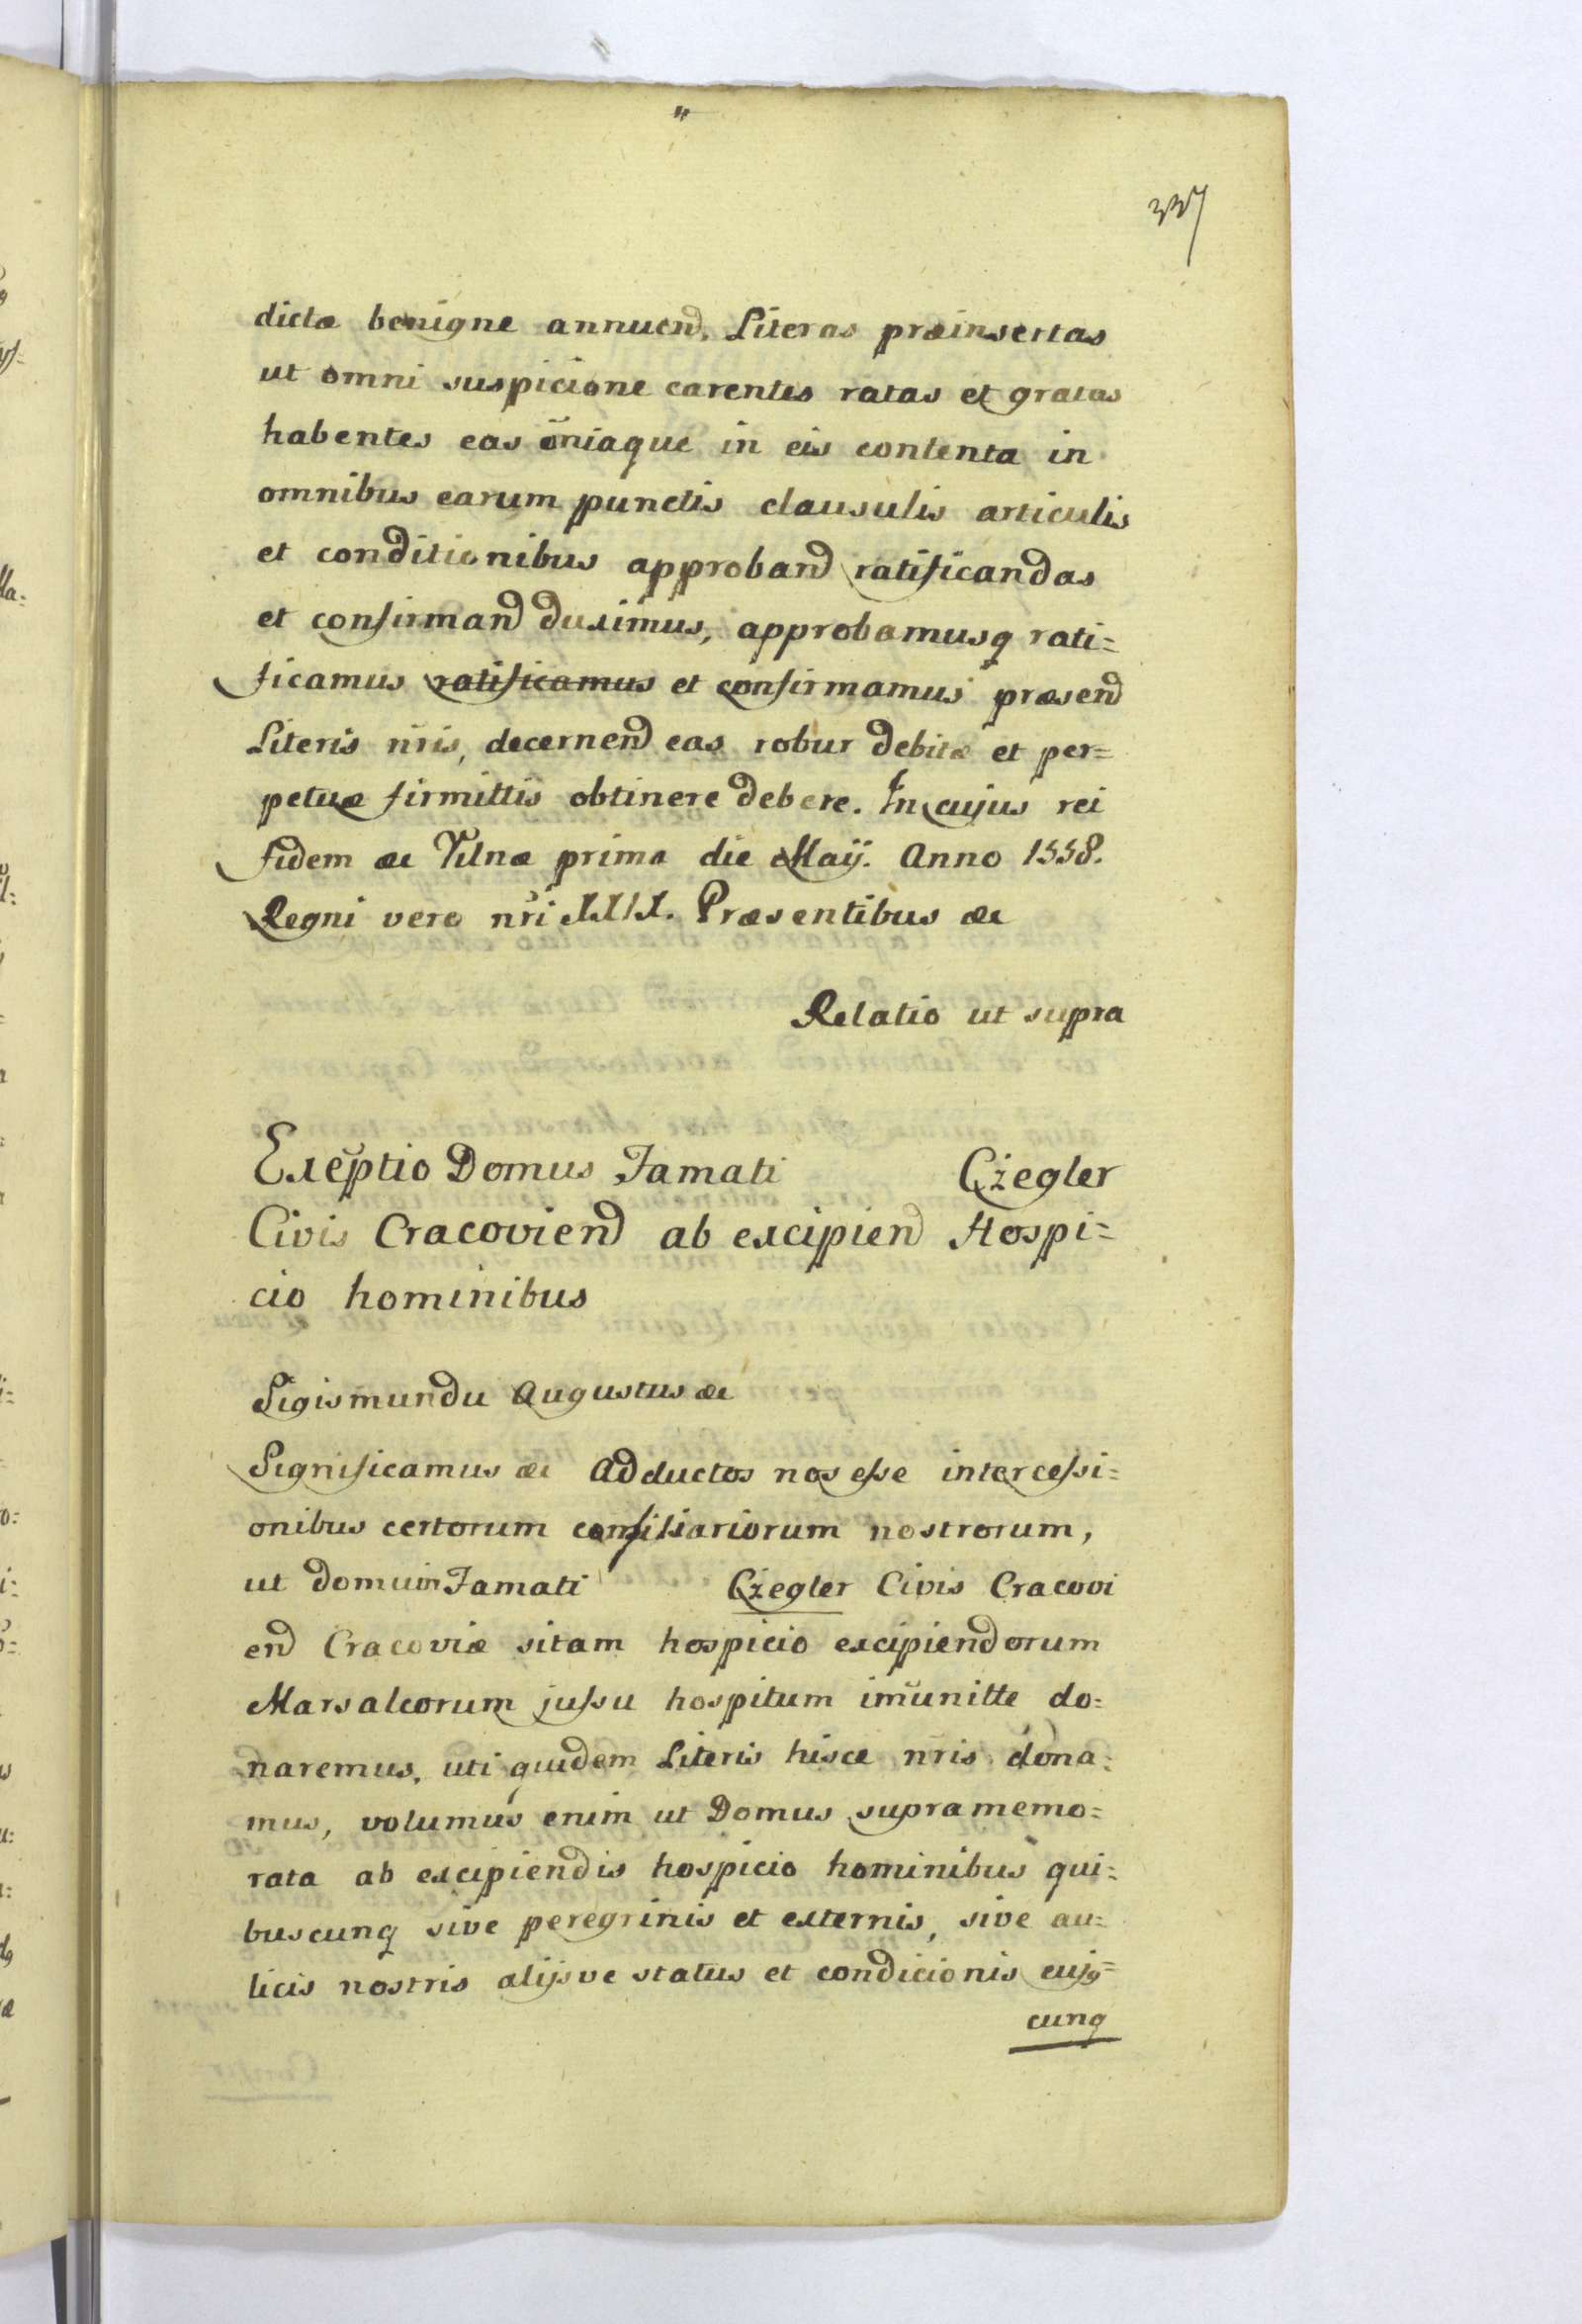 337
dictæ benigne annuend. Literas præinsertas
ut omni suspicione carentes ratas et gratas
habentes eas om̃niaque in eis contenta in
omnibus earum punctis clausulis articulis
et conditionibus approband ratificandas
et confirmand duximus, approbamusq rati=
ficamus ratificamus et confirmamus præsend
Literis nr̃is, decernend eas robur debitæ et per=
petuæ firmittis obtinere debere. In cujus rei
fidem &c Vilnæ prima die Maij. Anno 1558.
Regni vero nr̃i XXIX. Præsentibus &c
Relatio ut supra
Exēptio Domus Famati Cżegler
Civis Cracoviend ab excipiend Hospi=
cio hominibus
Sigismundu Augustus &c
Significamus &c Adductos nos esse intercessi=
onibus certorum consiliariorum nostrorum,
ut domum Famati Cżegler Civis Cracovi
end Cracoviæ sitam hospicio excipiendorum
Marsalcorum jussu hospitum im̃unitte do=
naremus, uti quidem Literis hisce nr̃is dona=
mus, volumus enim ut Domus supra memo=
rata ab excipiendis hospicio hominibus qui=
buscunq sive peregrinis et externis, sive au=
licis nostris alijsve status et condicionis cujq=
cunq